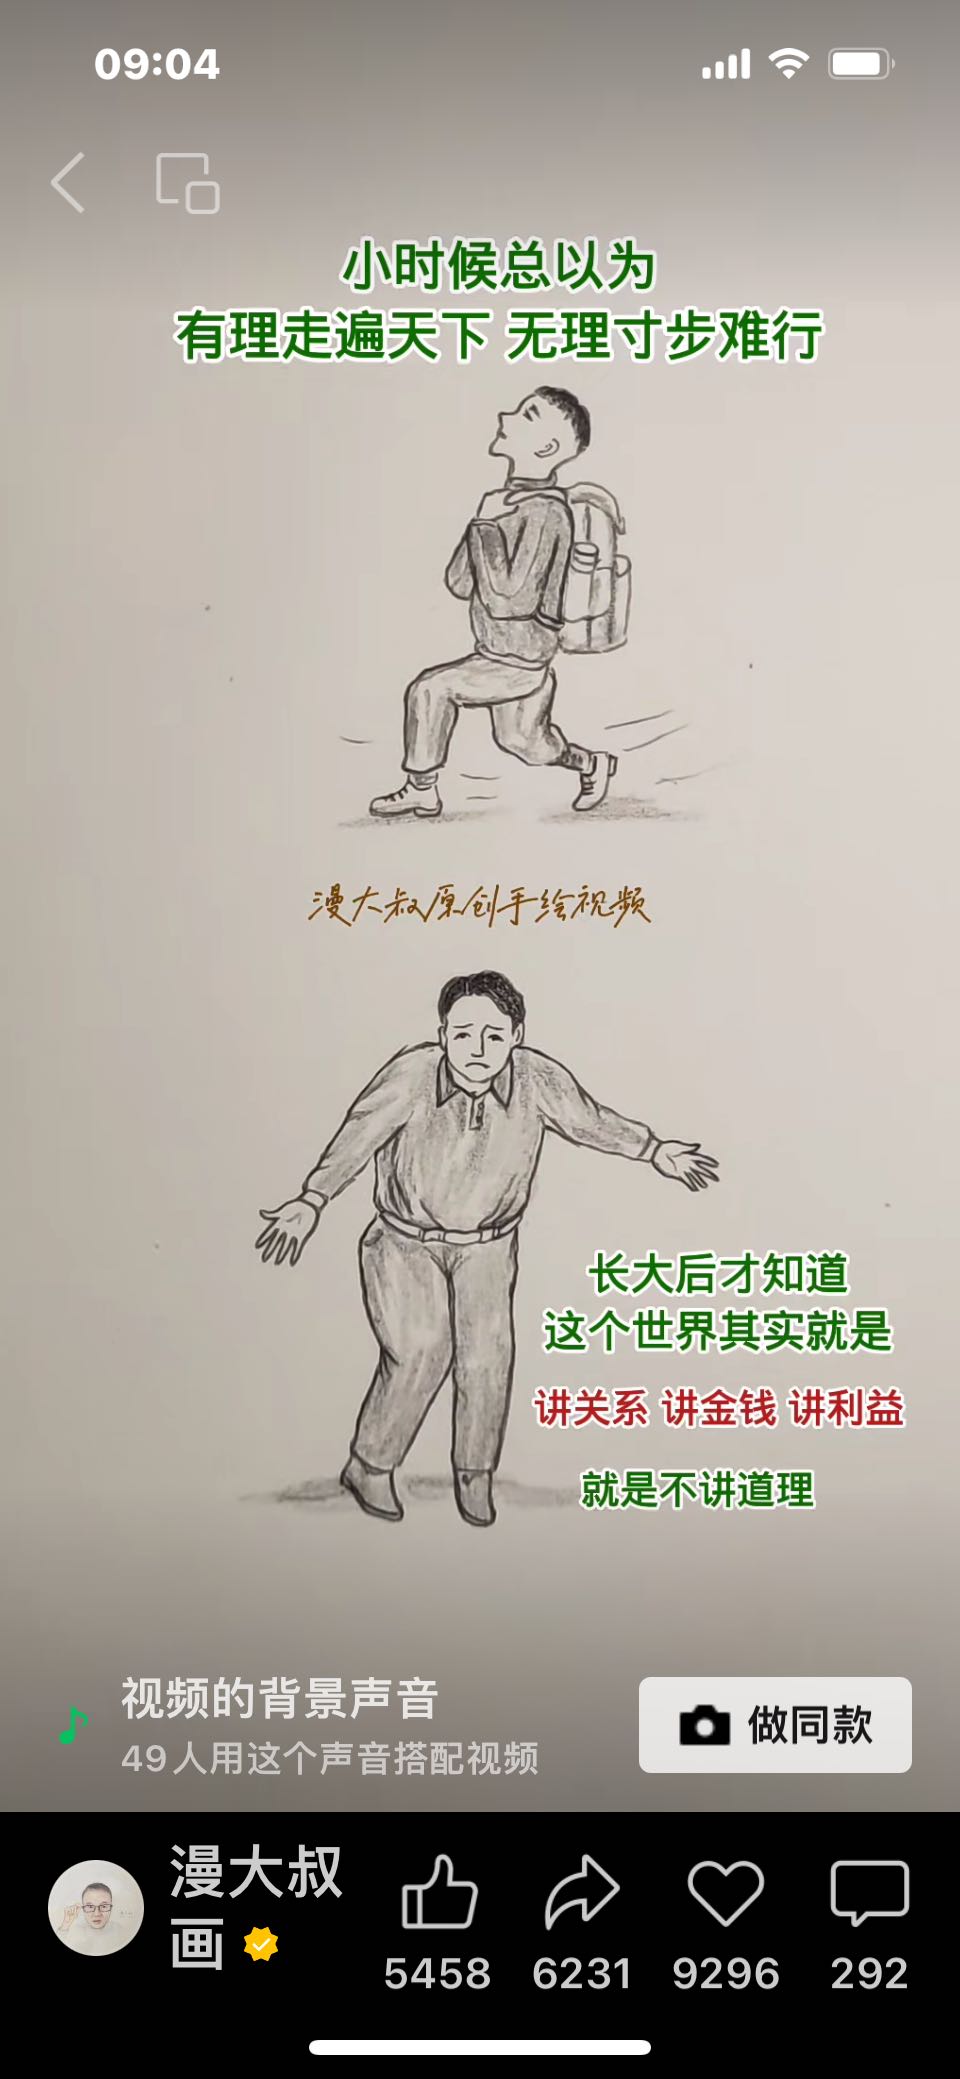 09:04
小时候总以为
有理走遍天下 无理寸步难行
漫大叔原创手绘视频
长大后才知道
这个世界其实就是
讲关系 讲金钱 讲利益
就是不讲道理
视频的背景声音
49人用这个声音搭配视频
做同款
漫大叔
画
5458
6231
9296
292